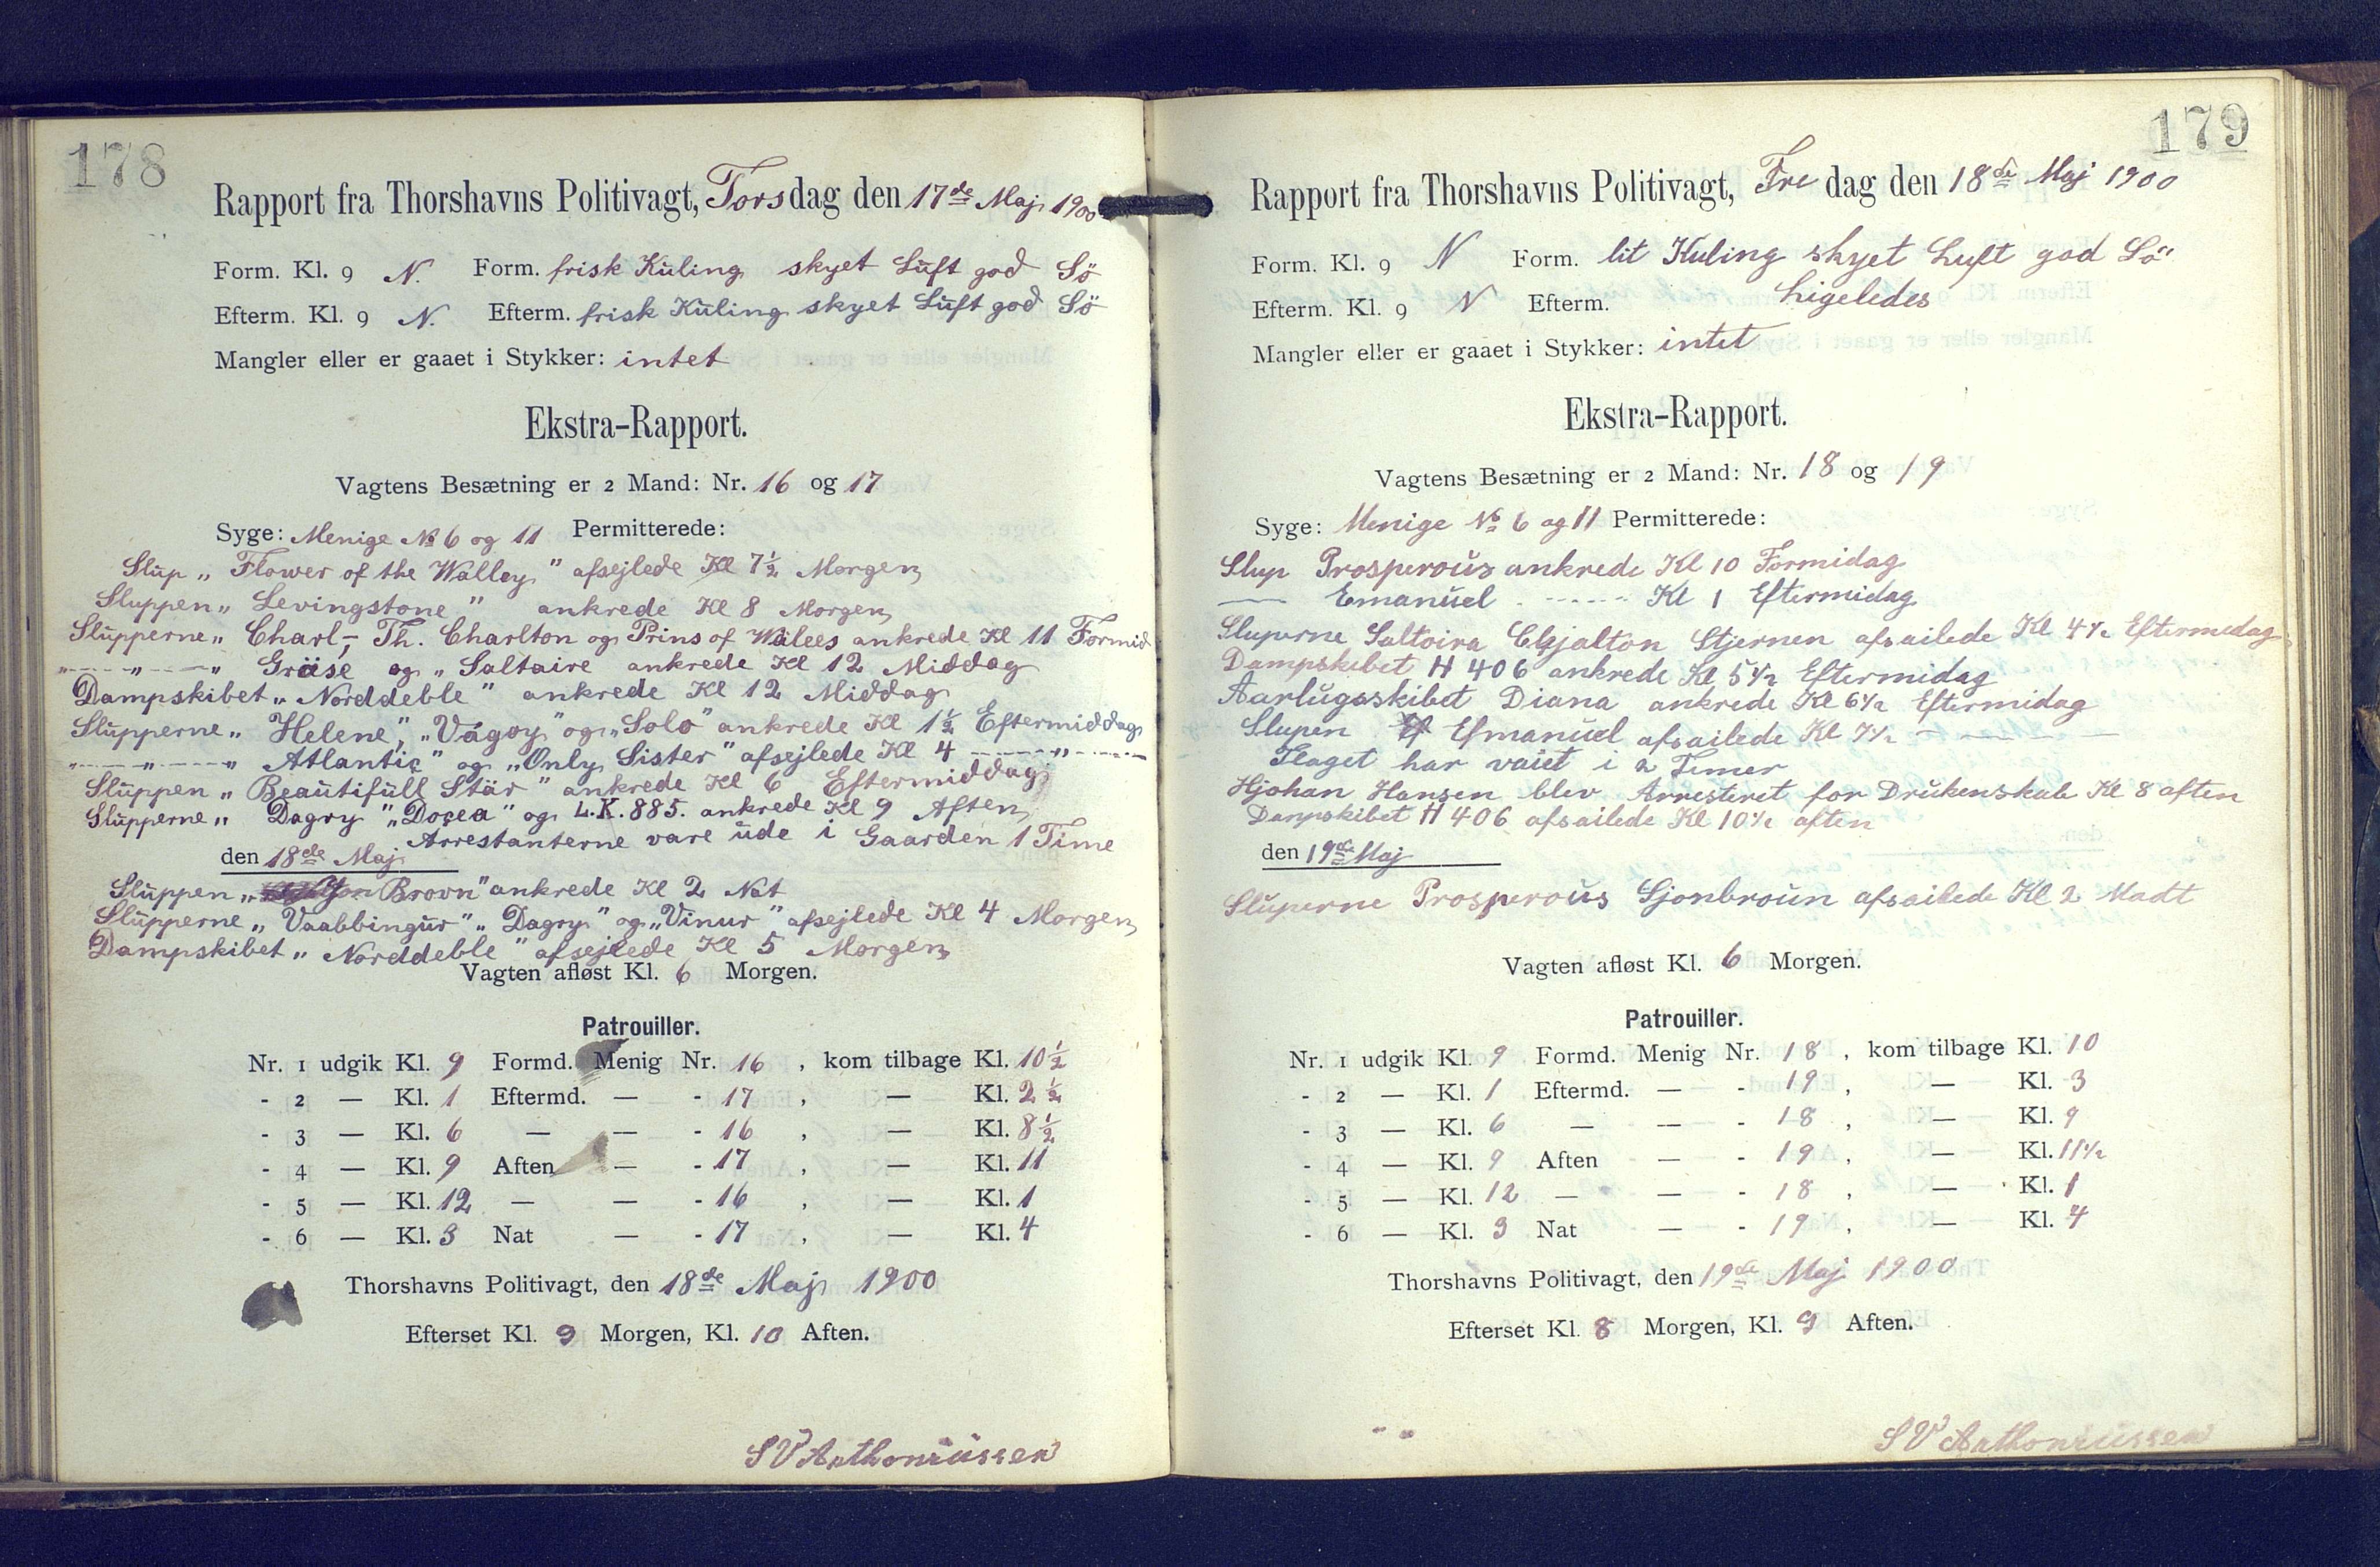 178
Rapport fra Thorshavns Politivagt, Torsdag den 17de Maj 1900
Form. Kl. 9 N. Form. frisk Kuling skyet Luft god Sö
Efterm. Kl. 9 N. Efterm. frisk Kuling skyet Luft god Sö
Mangler eller er gaaet i Stykker: intet
Ekstra-Rapport.
Vagtens Besætning er 2 Mand: Nr. 16 og 17
Syge: Menige № 6 og 11 Permitterede:
Slup „ Flower of the Walley " afsejlede Kl 7½ Morgen
Sluppen „ Levingstone " ankrede Kl 8 Morgen
Slupperne „ Charl, - Th. Charlton og Prins of Walees ankrede Kl 11 Formid
„ ---- „ ---- „ Gräse og „ Saltaire ankrede Kl 12 Middag
Dampskibet „ Norddeble " ankrede Kl 12 Middag
Slupperne „ Helene", „Vagoy" og „Solo" ankrede Kl 1½ Eftermiddag
„ ---- „ ---- „ Atlantic" og „Only Sister" afsejlede Kl 4 ---- „ ----
Sluppen „ Beautifull Stär " ankrede Kl 6 Eftermiddag
Slupperne „ Dagry " „Docea" og L.K. 885. ankrede Kl 9 Aften
Arrestanterne vare ude i Gaarden 1 Time
den 18de Maj
Sluppen „ Brovn" ankrede Kl 2 Nat
Slupperne „ Vaabbingur" „ Dagry" og „Vinur" afsejlede Kl 4 Morgen
Dampskibet „ Norddeble " afsejlede Kl 5 Morgen
Vagten afløst Kl. 6 Morgen.
Patrouiller.
Nr. 1 udgik Kl. 9 Formd. Menig Nr. 16 , kom tilbage Kl. 10½
- 2 — Kl. 1 Eftermd. — - 17 , — Kl. 2½
- 3 — Kl. 6 — — - 16 , — Kl. 8½
- 4 — Kl. 9 Aften — - 17 , — Kl. 11
- 5 — Kl. 12 — — - 16 , — Kl. 1
- 6 — Kl. 3 Nat — - 17 , — Kl. 4
Thorshavns Politivagt, den 18de Maj 1900
Efterset Kl. 9 Morgen, Kl. 10 Aften.
S V Anthoniussen
179
Rapport fra Thorshavns Politivagt, Fre dag den 18de Maj 1900
Form. Kl. 9 N Form. lit Kuling skyet Luft god Sö
Efterm. Kl. 9 N Efterm. Ligeledes
Mangler eller er gaaet i Stykker: intet
Ekstra-Rapport.
Vagtens Besætning er 2 Mand: Nr. 18 og 19
Syge: Menige № 6 og 11 Permitterede:
Slup Prosperous ankrede Kl 10 Formidag
— Emanuel - ----- Kl 1 Eftermidag
Sluperne Saltoira Stjernen afsailede Kl 4½ Eftermedag
Dampskibet H 406 ankrede Kl 5½ Eftermidag
Aarlugsskibet Diana ankrede Kl 6½ Eftermidag
Slupen Efmanuel afsailede Kl 7½ — — —
Flaget har vaiet i 2 Timer
Hjohan Hansen blev Arresteret for Drukenskab Kl 8 aften
Dampskibet H 406 afsailede Kl 10½ aften
den 19de Maj
Sluperne Prosperous Sjonbroun afsailede Kl 2 Nadt
Vagten afløst Kl. 6 Morgen.
Patrouiller.
Nr. 1 udgik Kl. 9 Formd. Menig Nr. 18 , kom tilbage Kl. 10
- 2 — Kl. 1 Eftermd. — - 19 , — Kl. 3
- 3 — Kl. 6 — — - 18 , — Kl. 9
- 4 — Kl. 9 Aften — - 19 , — Kl. 11½
- 5 — Kl. 12 — — - 18 , — Kl. 1
- 6 — Kl. 3 Nat — - 19 , — Kl. 4
Thorshavns Politivagt, den 19de Maj 1900
Efterset Kl. 8 Morgen, Kl. 9 Aften.
S V Anthoniussen